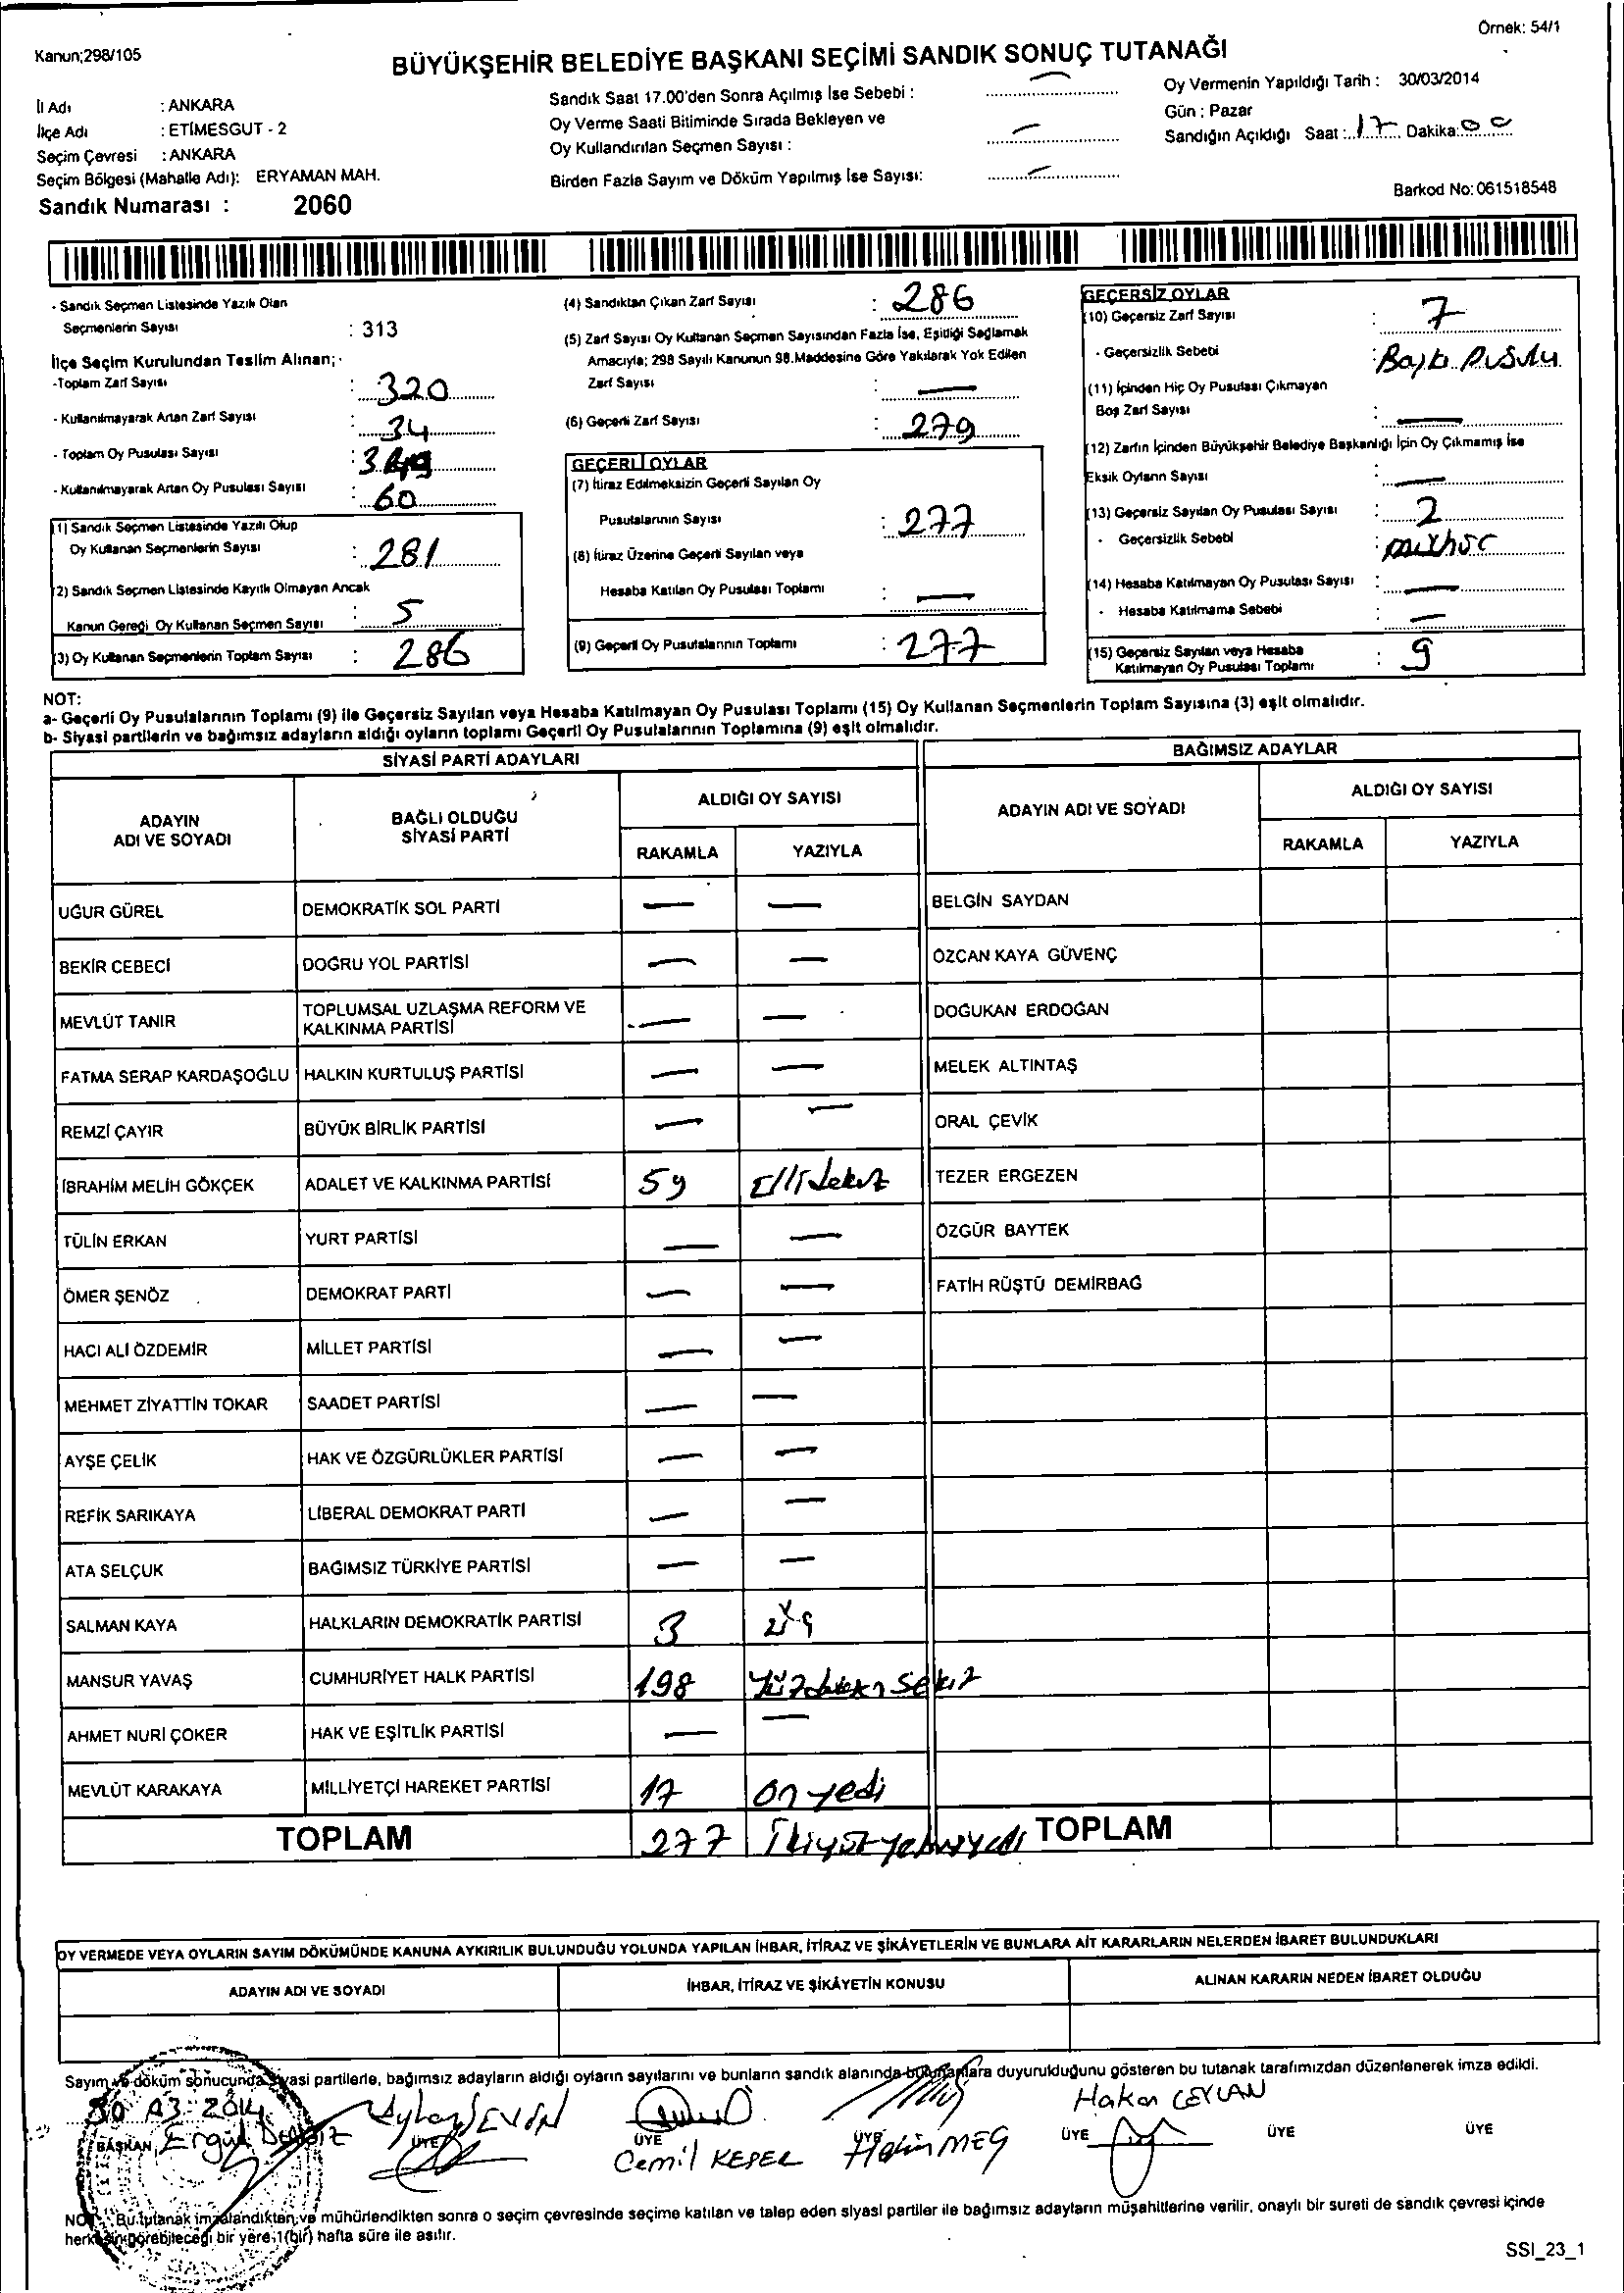 Örnek: 54/1
Kanun;298/105
BÜYÜKŞEHİR BELEDİYE BAŞKANI SEÇİMİ SANDIK SONUÇ TUTANAĞI
İl Adı : ANKARA
İlçe Adı : ETİMESGUT - 2
Seçim Çevresi : ANKARA
Seçim Bölgesi (Mahalle Adı): ERYAMAN MAH.
Sandık Numarası : 2060
Sandık Saat 17.00'den Sonra Açılmış İse Sebebi : —
Oy Verme Saati Bitiminde Sırada Bekleyen ve
Oy Kullandırılan Seçmen Sayısı : —
Birden Fazla Sayım ve Döküm Yapılmış İse Sayısı: —
Oy Vermenin Yapıldığı Tarih : 30/03/2014
Gün : Pazar
Sandığın Açıldığı Saat : 17 Dakika: 00
Barkod No: 061518548
- Sandık Seçmen Listesinde Yazılı Olan
Seçmenlerin Sayısı : 313
İlçe Seçim Kurulundan Teslim Alınan;
-Toplam Zarf Sayısı : 320
- Kullanılmayarak Artan Zarf Sayısı : 34
- Toplam Oy Pusulası Sayısı :
- Kullanılmayarak Artan Oy Pusulası Sayısı : 60
(1) Sandık Seçmen Listesinde Yazılı Olup
Oy Kullanan Seçmenlerin Sayısı : 281
(2) Sandık Seçmen Listesinde Kayıtlı Olmayan Ancak
Kanun Gereği Oy Kullanan Seçmen Sayısı : 5
(3) Oy Kullanan Seçmenlerin Toplam Sayısı : 286
(4) Sandıktan Çıkan Zarf Sayısı : 286
(5) Zarf Sayısı Oy Kullanan Seçmen Sayısından Fazla İse, Eşitliği Sağlamak
Amacıyla; 298 Sayılı Kanunun 98.Maddesine Göre Yakılarak Yok Edilen
Zarf Sayısı : —
(6) Geçerli Zarf Sayısı : 279
GEÇERLİ OYLAR
(7) İtiraz Edilmeksizin Geçerli Sayılan Oy
Pusulalarının Sayısı : 277
(8) İtiraz Üzerine Geçerli Sayılan veya
Hesaba Katılan Oy Pusulası Toplamı : —
(9) Geçerli Oy Pusulalarının Toplamı : 277
GEÇERSİZ OYLAR
(10) Geçersiz Zarf Sayısı : 7
- Geçersizlik Sebebi :
(11) İçinden Hiç Oy Pusulası Çıkmayan
Boş Zarf Sayısı : —
(12) Zarfın İçinden Büyükşehir Belediye Başkanlığı İçin Oy Çıkmamış İse
Eksik Oyların Sayısı : —
(13) Geçersiz Sayılan Oy Pusulası Sayısı : 2
- Geçersizlik Sebebi :
(14) Hesaba Katılmayan Oy Pusulası Sayısı : —
- Hesaba Katılmama Sebebi : —
(15) Geçersiz Sayılan veya Hesaba
Katılmayan Oy Pusulası Toplamı : 9
NOT:
a- Geçerli Oy Pusulalarının Toplamı (9) ile Geçersiz Sayılan veya Hesaba Katılmayan Oy Pusulası Toplamı (15) Oy Kullanan Seçmenlerin Toplam Sayısına (3) eşit olmalıdır.
b- Siyasi partilerin ve bağımsız adayların aldığı oyların toplamı Geçerli Oy Pusulalarının Toplamına (9) eşit olmalıdır.
SİYASİ PARTİ ADAYLARI BAĞIMSIZ ADAYLAR
ADAYIN ADI VE SOYADI BAĞLI OLDUĞU SİYASİ PARTİ ALDIĞI OY SAYISI ADAYIN ADI VE SOYADI ALDIĞI OY SAYISI
RAKAMLA YAZIYLA RAKAMLA YAZIYLA
UĞUR GÜREL DEMOKRATİK SOL PARTİ — — BELGİN SAYDAN
BEKİR CEBECİ DOĞRU YOL PARTİSİ — — ÖZCAN KAYA GÜVENÇ
MEVLÜT TANIR TOPLUMSAL UZLAŞMA REFORM VE KALKINMA PARTİSİ — — DOĞUKAN ERDOĞAN
FATMA SERAP KARDAŞOĞLU HALKIN KURTULUŞ PARTİSİ — — MELEK ALTINTAŞ
REMZİ ÇAYIR BÜYÜK BİRLİK PARTİSİ — — ORAL ÇEVİK
İBRAHİM MELİH GÖKÇEK ADALET VE KALKINMA PARTİSİ 59 TEZER ERGEZEN
TÜLİN ERKAN YURT PARTİSİ — — ÖZGÜR BAYTEK
ÖMER ŞENÖZ DEMOKRAT PARTİ — — FATİH RÜŞTÜ DEMİRBAĞ
HACI ALİ ÖZDEMİR MİLLET PARTİSİ — —
MEHMET ZİYATTİN TOKAR SAADET PARTİSİ — —
AYŞE ÇELİK HAK VE ÖZGÜRLÜKLER PARTİSİ — —
REFİK SARIKAYA LİBERAL DEMOKRAT PARTİ — —
ATA SELÇUK BAĞIMSIZ TÜRKİYE PARTİSİ — —
SALMAN KAYA HALKLARIN DEMOKRATİK PARTİSİ 3
MANSUR YAVAŞ CUMHURİYET HALK PARTİSİ 198
AHMET NURİ ÇOKER HAK VE EŞİTLİK PARTİSİ — —
MEVLÜT KARAKAYA MİLLİYETÇİ HAREKET PARTİSİ 17 on yedi
TOPLAM 277 TOPLAM
OY VERMEDE VEYA OYLARIN SAYIM DÖKÜMÜNDE KANUNA AYKIRILIK BULUNDUĞU YOLUNDA YAPILAN İHBAR, İTİRAZ VE ŞİKÂYETLERİN VE BUNLARA AİT KARARLARIN NELERDEN İBARET BULUNDUKLARI
ADAYIN ADI VE SOYADI İHBAR, İTİRAZ VE ŞİKÂYETİN KONUSU ALINAN KARARIN NEDEN İBARET OLDUĞU
Sayım ve döküm sonucunda siyasi partilerle, bağımsız adayların aldığı oyların sayılarını ve bunların sandık alanında bulunanlara duyurulduğunu gösteren bu tutanak tarafımızdan düzenlenerek imza edildi.
30 03 2014 Hakan CEYLAN
BAŞKAN ÜYE ÜYE ÜYE ÜYE ÜYE ÜYE
Cemil
NOT: Bu tutanak imzalandıktan ve mühürlendikten sonra o seçim çevresinde seçime katılan ve talep eden siyasi partiler ile bağımsız adayların müşahitlerine verilir, onaylı bir sureti de sandık çevresi içinde
herkesin görebileceği bir yere 1(bir) hafta süre ile asılır.
SSI_23_1